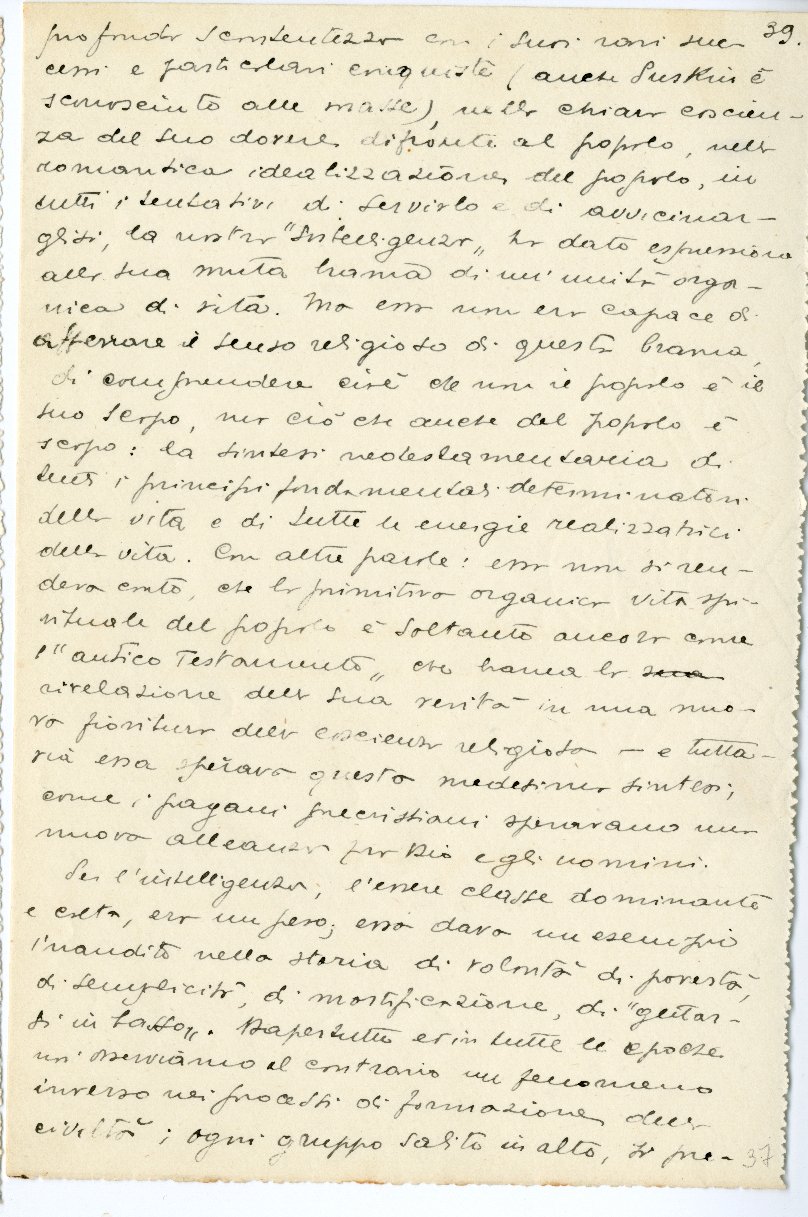 39.
profonda scontentezza con i suoi rari suc
cessi e particolari conquiste (anche Puskin è
sconosciuto alle masse), nella chiara coscien-
za del suo dovere difronte al popolo, nella
romantica idealizzazione del popolo, in
tutti i tentativi di servirlo e di avvicinar-
glisi, la nostra "Intelligenza„ ha dato espressione
alla sua muta brama di un'unità orga-
nica di vita. Ma essa non era capace di
afferrare il senso religioso di questa brama,
di comprendere cioè che non il popolo è il
suo scopo, ma ciò che anche del popolo è
scopo: la sintesi neotestamentaria di
tutti i principi fondamentali determinatori
della vita e di tutte le energie realizzatrici
della vita. Con altre parole: essa non si ren-
deva conto, che la primitiva organica vita spi-
rituale del popolo è soltanto ancora come
l'"antico Testamento„ che brama la sua
rivelazione della sua verità in una nuo-
va fioritura della coscienza religiosa — e tutta-
via essa sperava questa medesima sintesi,
come i pagani precristiani speravano una
nuova alleanza fra Dio e gli uomini.
Per l'intelligenza, l'essere classe dominante
e colta, era un peso; essa dava un esempio
inaudito nella storia di volontà di povertà,
di semplicità, di mortificazione, di "gettar-
si in basso„. Dapertutto ed in tutte le epoche
noi osserviamo al contrario un fenomeno
inverso nei processi di formazione della
civiltà; ogni gruppo salito in alto, si pre-
37